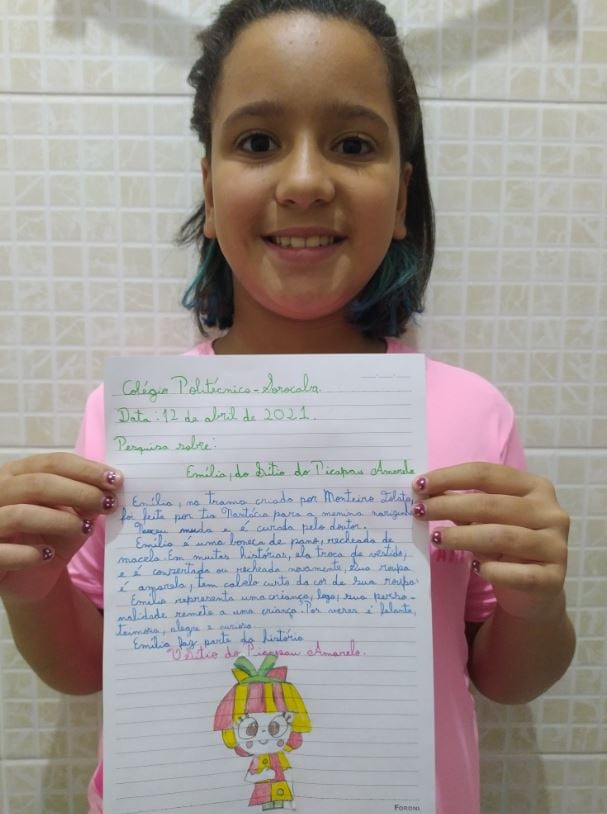 Colégio Politécnico - Sorocaba.
Data: 12 de abril de 2021.
Pesquisa sobre:
Emília, do Sítio do Picapau Amarelo
Emília, na trama criado por Monteiro Lobato,
foi feita por tia Nastácia para a menina narizinho
Nasceu muda e é curada pelo doutor.
Emília é uma boneca de pano, recheada de
macela. Em muitas histórias, ela troca de vestido,
e é consertada ou recheada novamente, sua roupa
é amarela, tem cabelo curto da cor de sua roupa.
Emília representa uma criança, logo, sua perso-
nalidade remete a uma criança. Por vezes é falante,
teimosa, alegre e curiosa.
Emília faz parte da história
O Sítio do Picapau Amarelo.
FORONI